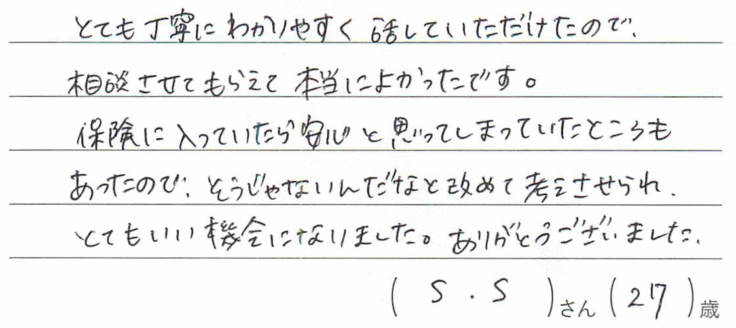 とても丁寧にわかりやすく話していただけたので、
相談させてもらえて本当によかったです。
保険に入っていたら安心と思ってしまっていたところも
あったので、そうじゃないんだなと改めて考えさせられ、
とてもいい機会になりました。ありがとうございました。
( S . S )さん ( 27 )歳